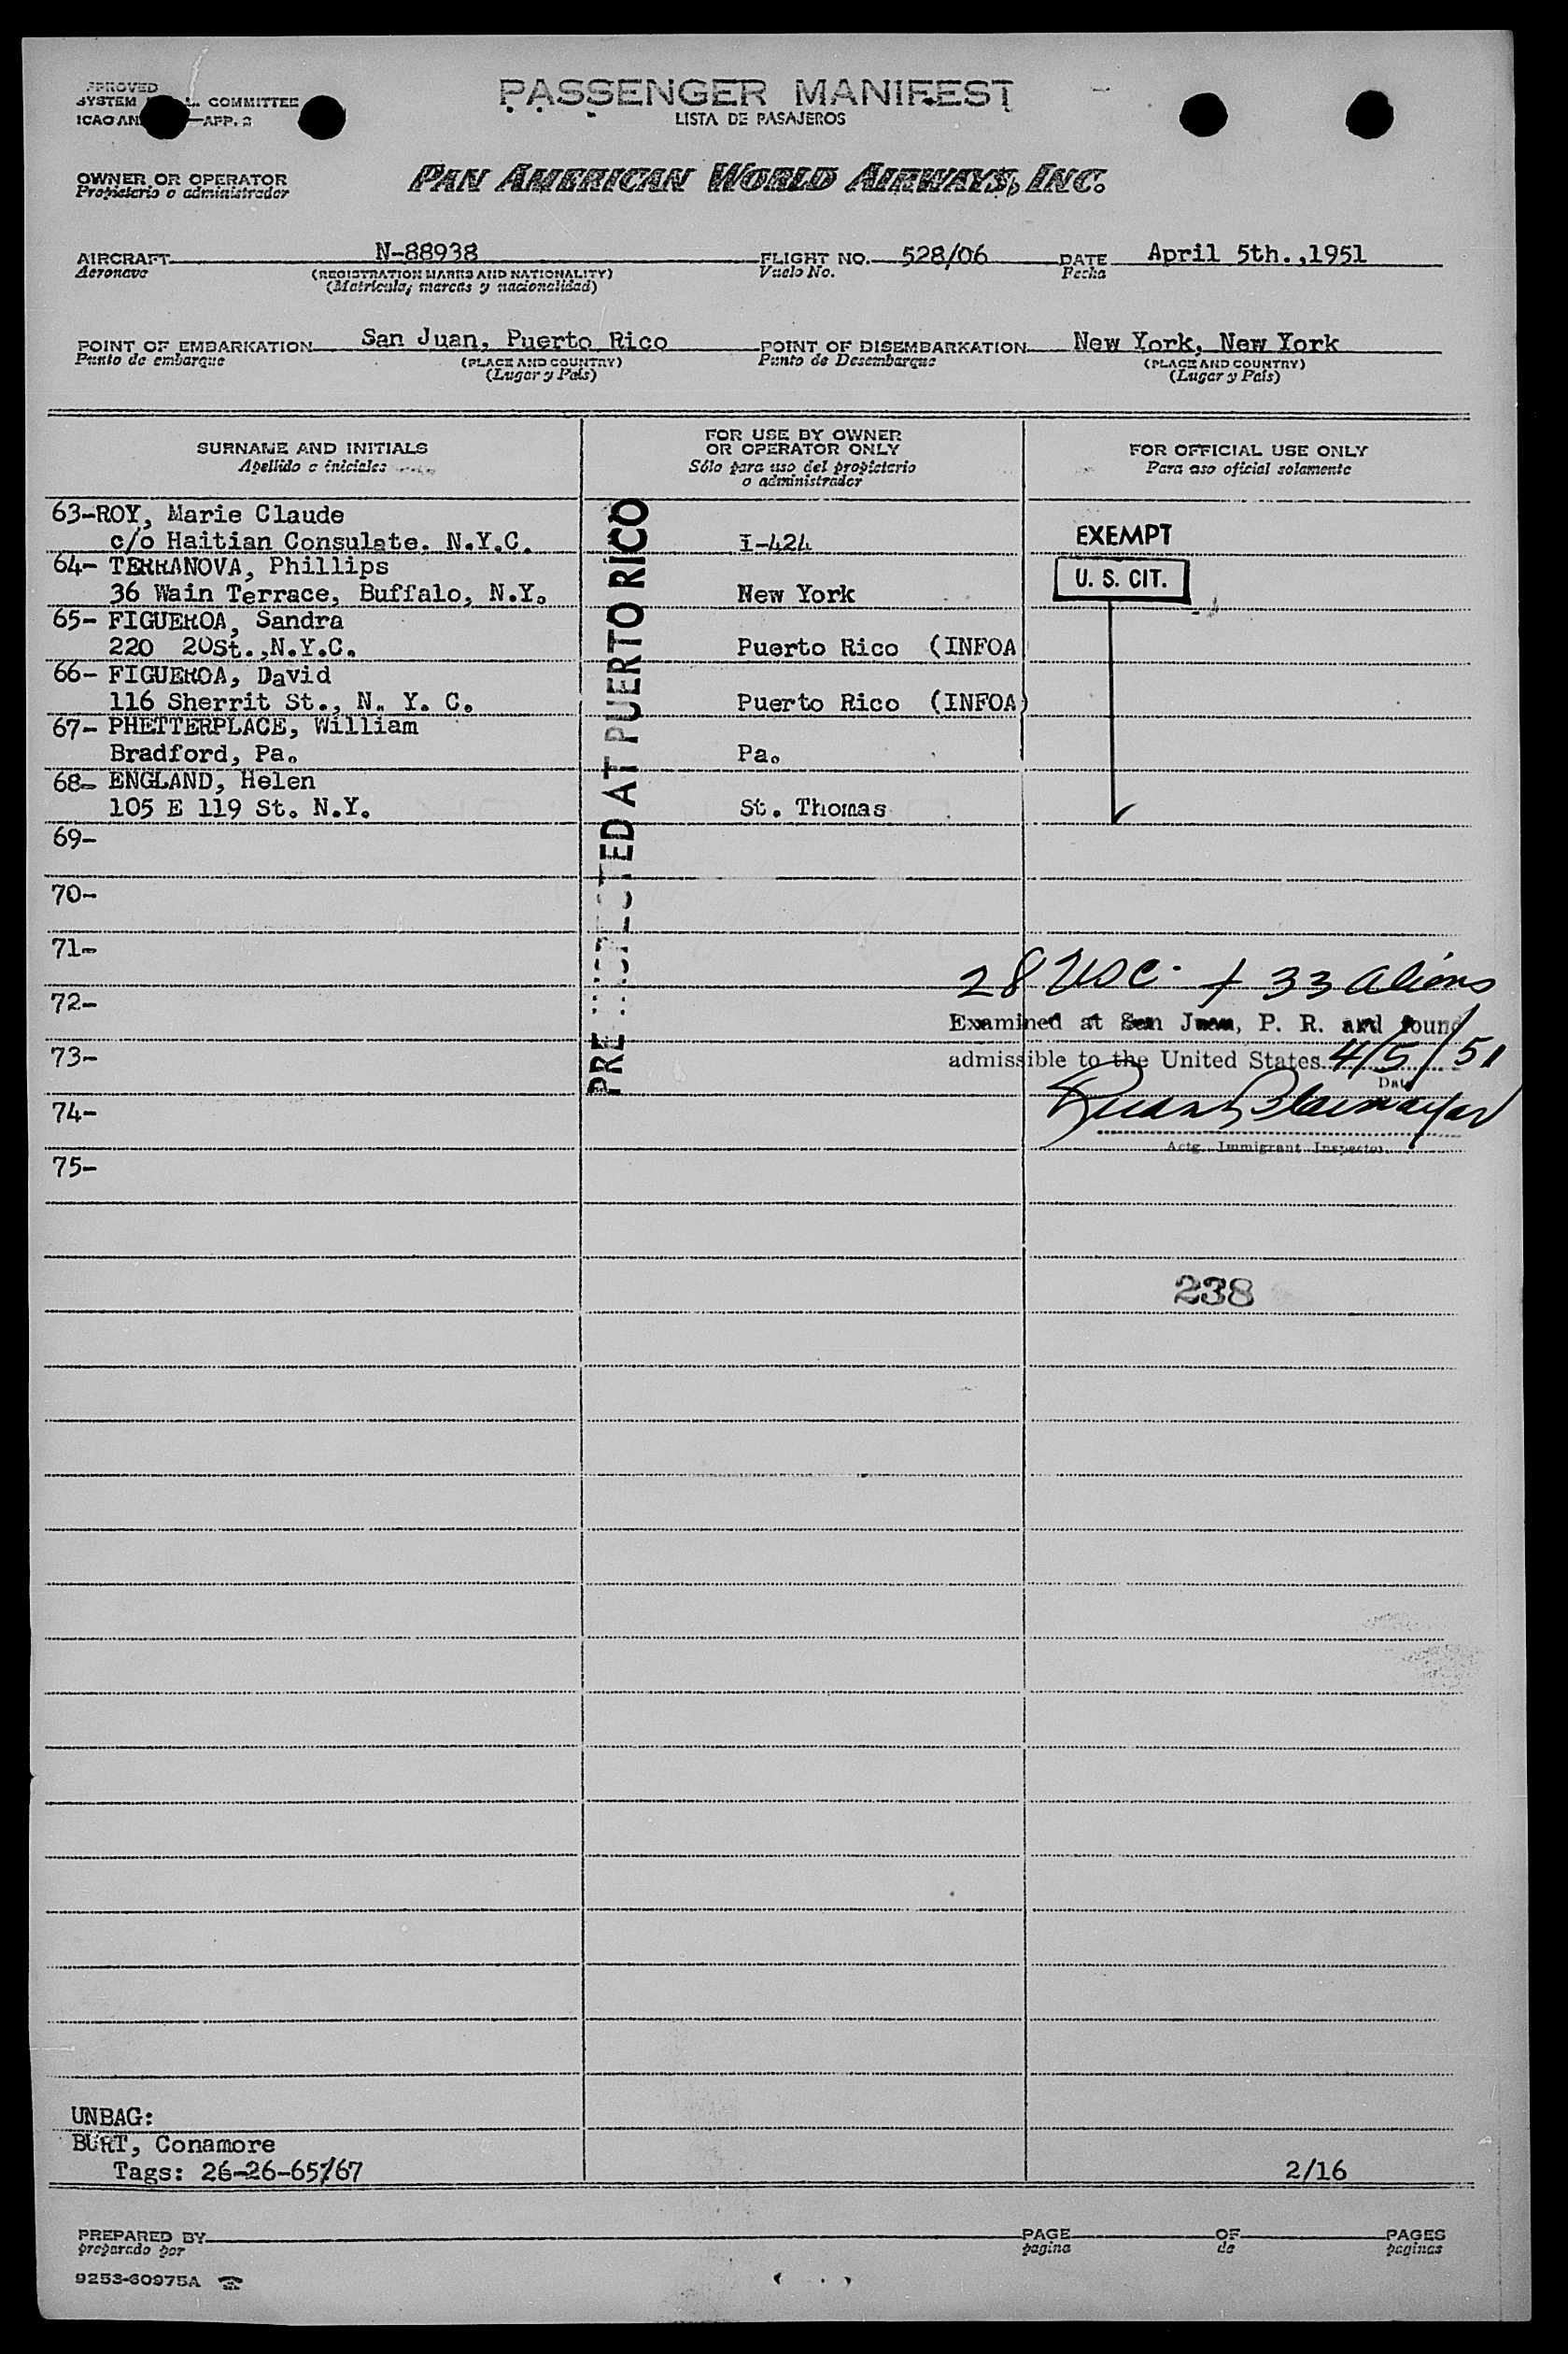 PASSENGER MANIFEST
LISTA DE PASAJEROS
APPROVED
SYSTEM COMMITTEE
ICAO AN —APP. 2
OWNER OR OPERATOR
Propietario o administrador
PAN AMERICAN WORLD AIRWAYS, INC.
AIRCRAFT N-88938 FLIGHT NO. 528/06 DATE April 5th.,1951
Aeronave (REGISTRATION MARKS AND NATIONALITY) Vuelo No. Fecha
(Matrícula, marcas y nacionalidad)
POINT OF EMBARKATION San Juan, Puerto Rico POINT OF DISEMBARKATION New York, New York
Punto de embarque (PLACE AND COUNTRY) Punto de Desembarque (PLACE AND COUNTRY)
(Lugar y País) (Lugar y País)
SURNAME AND INITIALS FOR USE BY OWNER OR OPERATOR ONLY FOR OFFICIAL USE ONLY
Apellido e iniciales Sólo para uso del propietario o administrador Para uso oficial solamente
63-ROY, Marie Claude
c/o Haitian Consulate. N.Y.C. I-424 EXEMPT
64- TERRANOVA, Phillips
36 Wain Terrace, Buffalo, N.Y. New York U. S. CIT.
65- FIGUEROA, Sandra
220 20St.,N.Y.C. Puerto Rico (INFOA
66- FIGUEROA, David
116 Sherrit St., N. Y. C. Puerto Rico (INFOA)
67- PHETTERPLACE, William
Bradford, Pa. Pa.
68- ENGLAND, Helen
105 E 119 St. N.Y. St. Thomas
PRE INSPECTED AT PUERTO RICO
69-
70-
71-
28 USC. + 33 aliens
72-
Examined at San Juan, P. R. and found
73-
admissible to the United States 4/5/51
Date
74-
Actg. Immigrant Inspector
75-
238
UNBAG:
BURT, Conamore
Tags: 26-26-65/67 2/16
PREPARED BY PAGE OF PAGES
preparado por pagina de paginas
9253-60975A